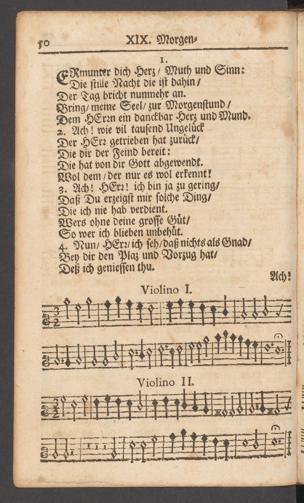 50
XIX. Morgen-
1.
ERmunter dich Herz/ Muth und Sinn:
Die stille Nacht die ist dahin/
Der Tag bricht nunmehr an.
Bring/ meine Seel/ zur Morgenstund/
Dem HErzn ein danckbar Herz und Mund.
2. Ach! wie vil tausend Ungelück
Der HErz getrieben hat zurück/
Die dir der Feind bereit:
Die hat von dir Gott abgewendt.
Wol dem/ der nur es wol erkennt!
3. Ach! HErz! ich bin ja zu gering/
Daß Du erzeigst mir solche Ding/
Die ich nie hab verdient.
Wers ohne deine grosse Güt/
So wer ich blieben unbehüt.
4. Nun/ HErz/ ich seh/ daß nichts als Gnad/
Bey dir den Plaz und Vorzug hat/
Deß ich geniessen thu.
Ach!
Violino I.
Violino II.